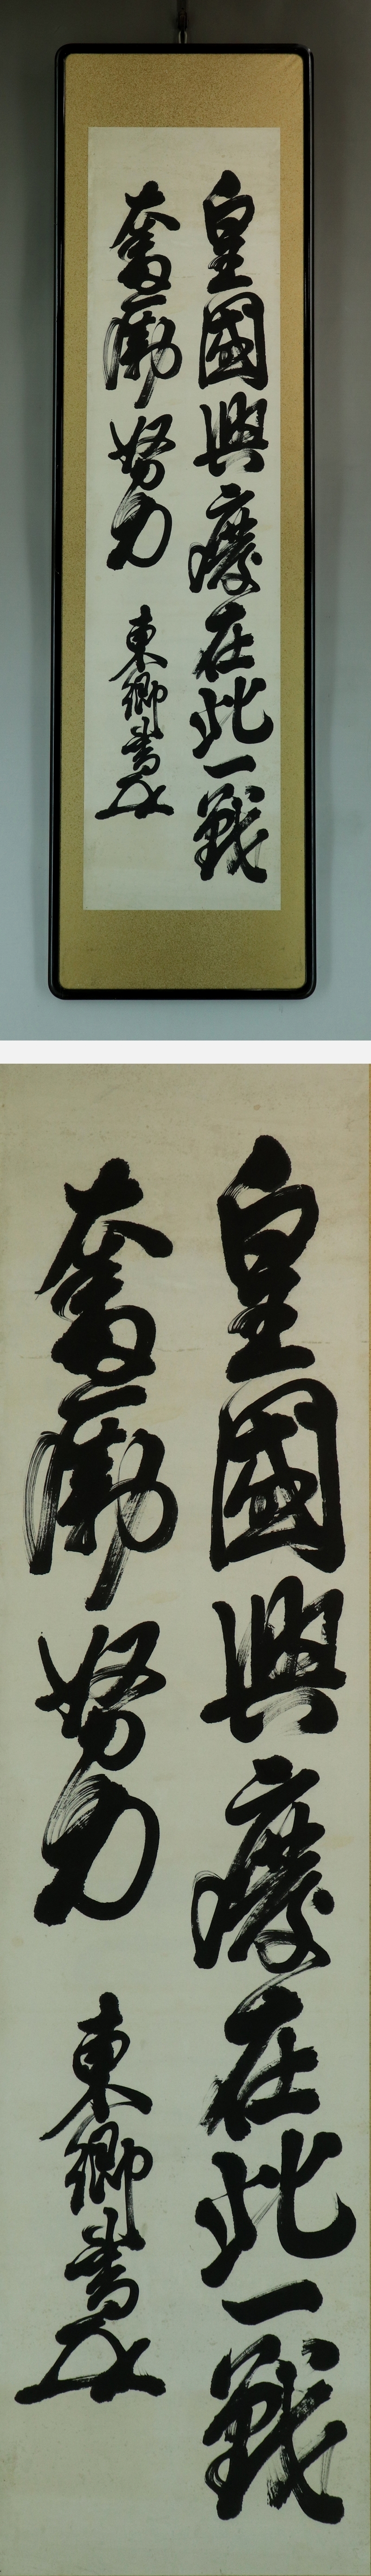 皇國興廢在此一戰
奮勵努力 東郷書
皇國興廢在此一戰
奮勵努力 東郷書